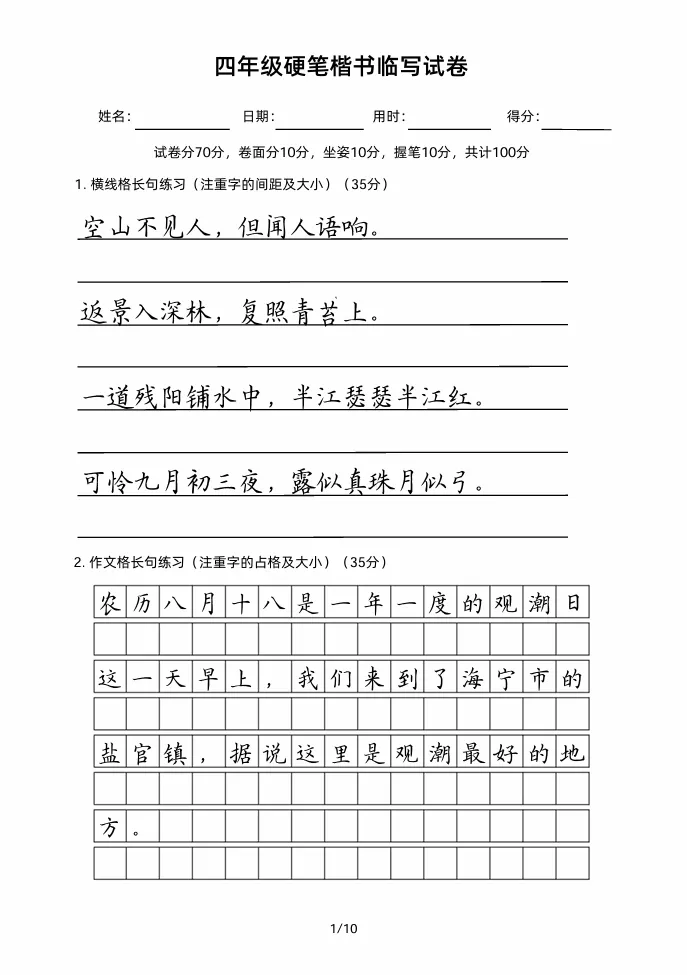 四年级硬笔楷书临写试卷
姓名： 日期： 用时： 得分：
试卷分70分，卷面分10分，坐姿10分，握笔10分，共计100分
1. 横线格长句练习（注重字的间距及大小）（35分）
空山不见人，但闻人语响。
返景入深林，复照青苔上。
一道残阳铺水中，半江瑟瑟半江红。
可怜九月初三夜，露似真珠月似弓。
2. 作文格长句练习（注重字的占格及大小）（35分）
农历八月十八是一年一度的观潮日
这一天早上，我们来到了海宁市的
盐官镇，据说这里是观潮最好的地
方。
1/10